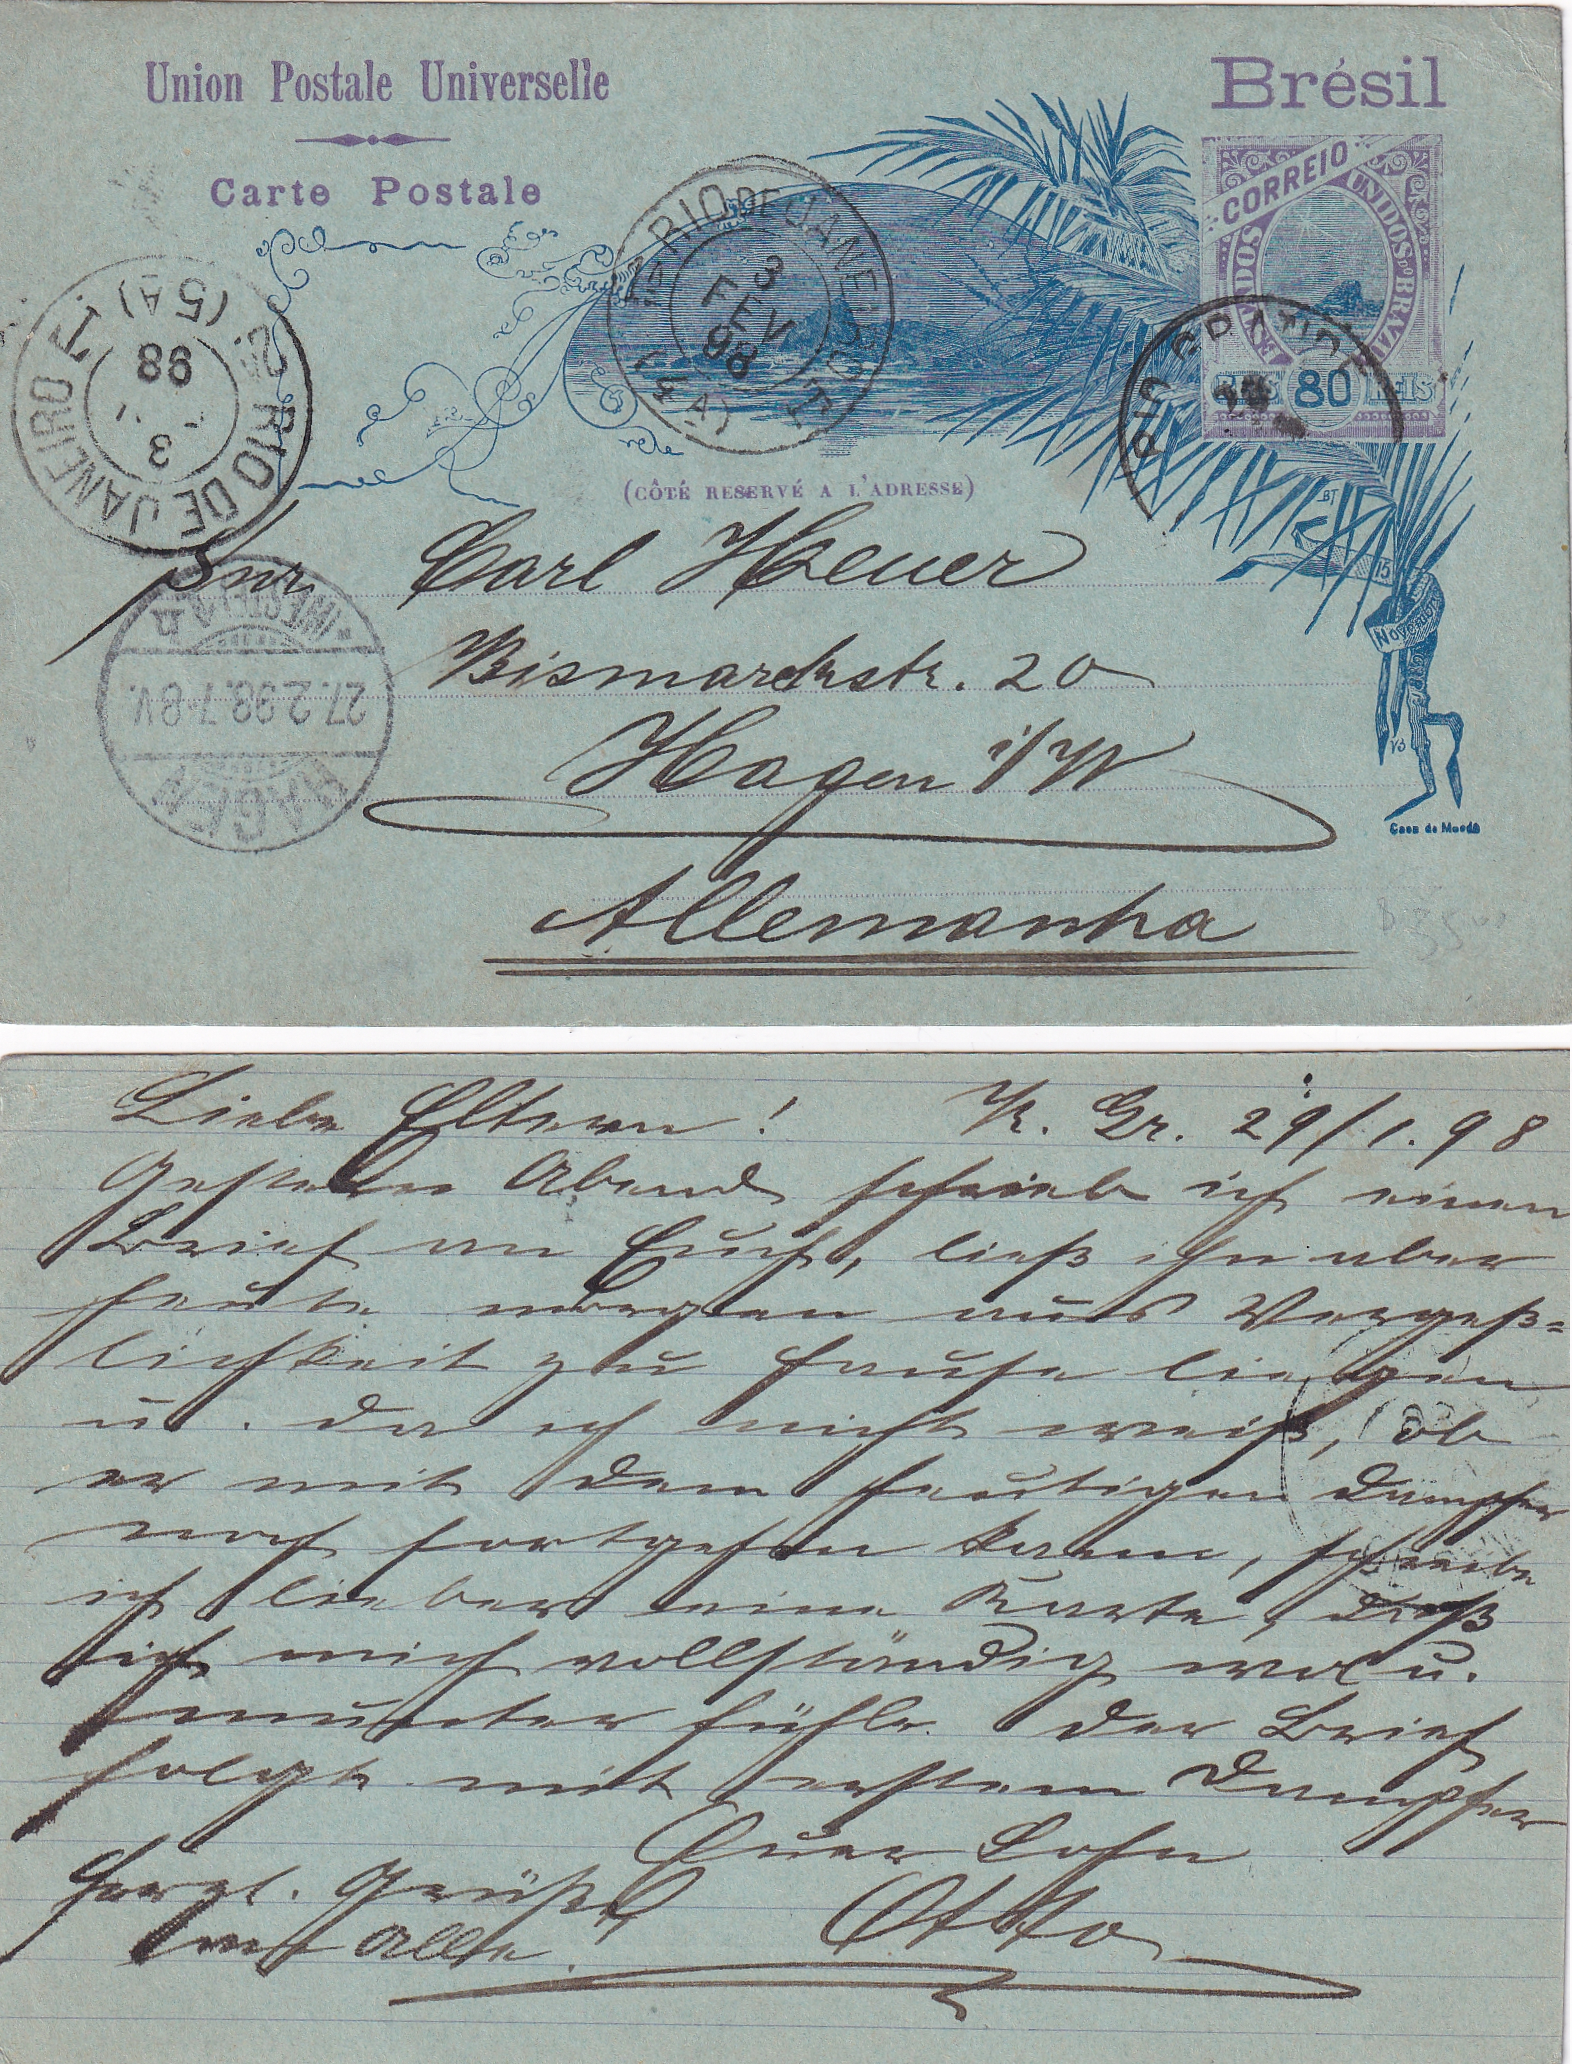 Union Postale Universelle
Brésil
Carte Postale
CORREIO
ESTADOS UNIDOS DO BRAZIL
REIS 80 REIS
RIO DE JANEIRO
3
FEV
98
(4A)
2A RIO DE JANEIRO T.
(5A)
3
98
RIO GRANDE
(CÔTÉ RESERVÉ A L'ADRESSE)
BT
15
Novembre
Snr. Carl Heuer
Bismarckstr. 20
Hagen i/W
Allemanha
HAGEN
27.2.98.7-8V.
*(WESTF.)*h
Casa da Moeda
Liebe Eltern! R. Gr. 29/1.98
Gestern Abend schrieb ich einen
Brief an Euch, ließ ihn aber
heute morgen aus Vergeß=
lichkeit zu Hause liegen
u. da ich nicht weiß, ob
er mit dem heutigen Dampfer
noch fortgehen kann, schreibe
ich lieber eine Karte, daß
ich mich vollständig wol u.
munter fühle. Der Brief
folgt mit erstem Dampfer
Euer Sohn
Herzl. Grüße Otto
an Alle!